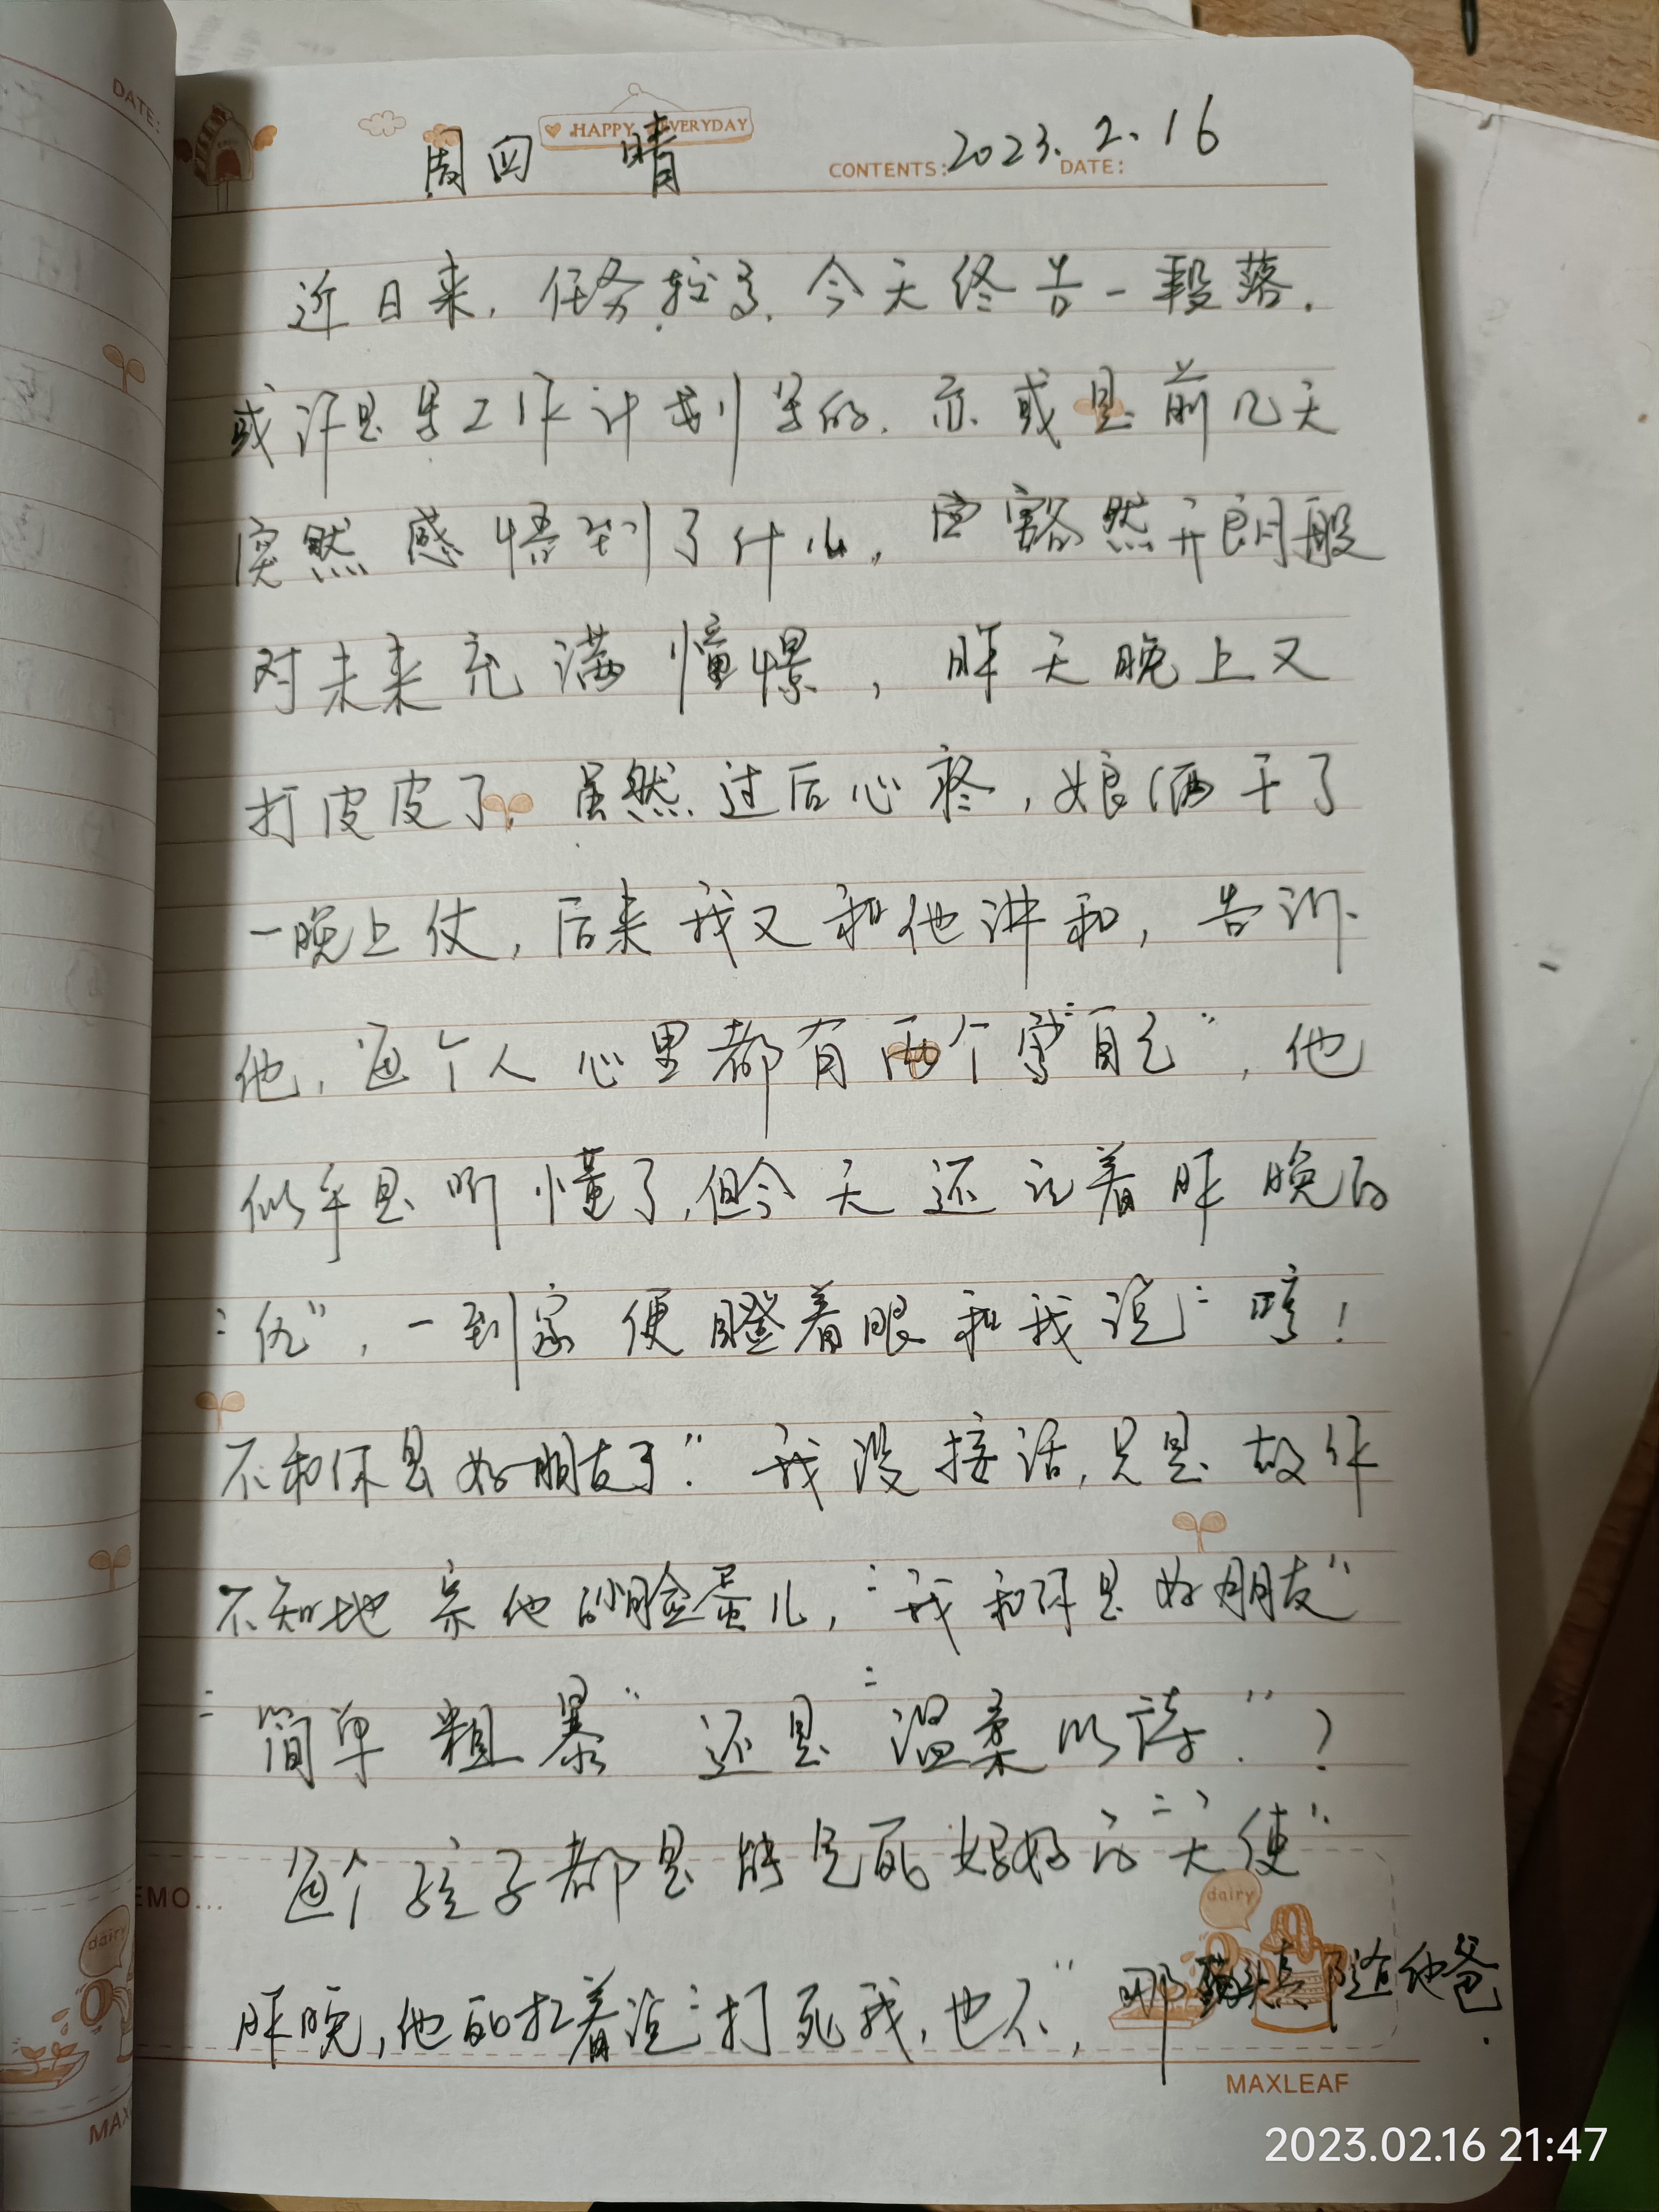 DATE:
HAPPY EVERYDAY
周四 晴 CONTENTS: 2023.2.16 DATE:
近日来，任务较多，今天终告一段落.
或许是年工作计划写的，亦或是前几天
突然感悟到了什么，豁然开朗般
对未来充满憧憬，昨天晚上又
打皮皮了，虽然过后心疼，娘俩干了
一晚上仗，后来我又和他讲和，告诉
他，每个人心里都有两个"自己"，他
似乎是听懂了，但今天还记着昨晚的
"仇"，一到家便瞪着眼和我说"哼！
不和你是好朋友了"我没接话，只是故作
不知地亲他的脸蛋儿，"我和你是好朋友"
"简单粗暴"还是"温柔以待"？
每个孩子都是妈妈的"天使"
昨晚，他还犟着说"打死我，也不"，那真随他爸.
EMO...
dairy
dairy
MAXLEAF
MAX
2023.02.16 21:47